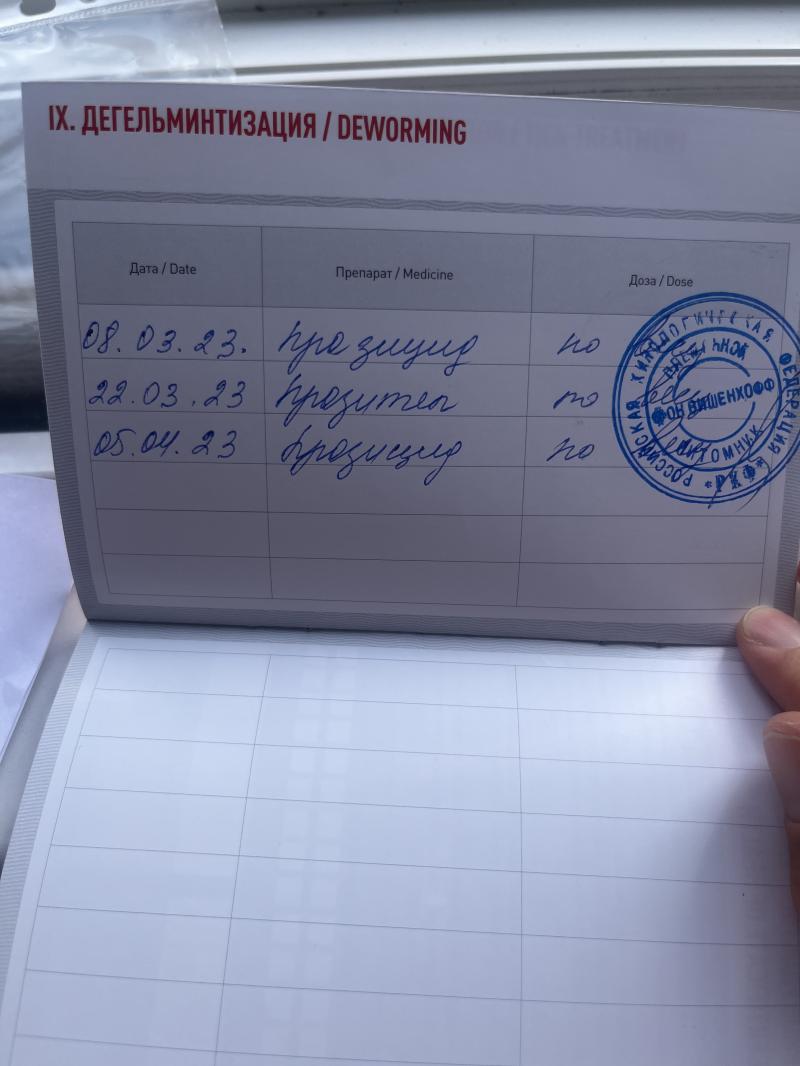 IX. ДЕГЕЛЬМИНТИЗАЦИЯ / DEWORMING
Дата / Date Препарат / Medicine Доза / Dose
08.03.23. Празицид по
22.03.23 Празител по
05.04.23 Празицид по
РОССИЙСКАЯ КИНОЛОГИЧЕСКАЯ ФЕДЕРАЦИЯ
*РКФ*
ПЛЕМЕННОЙ
ФОН ВИШЕНХОФФ
ПИТОМНИК